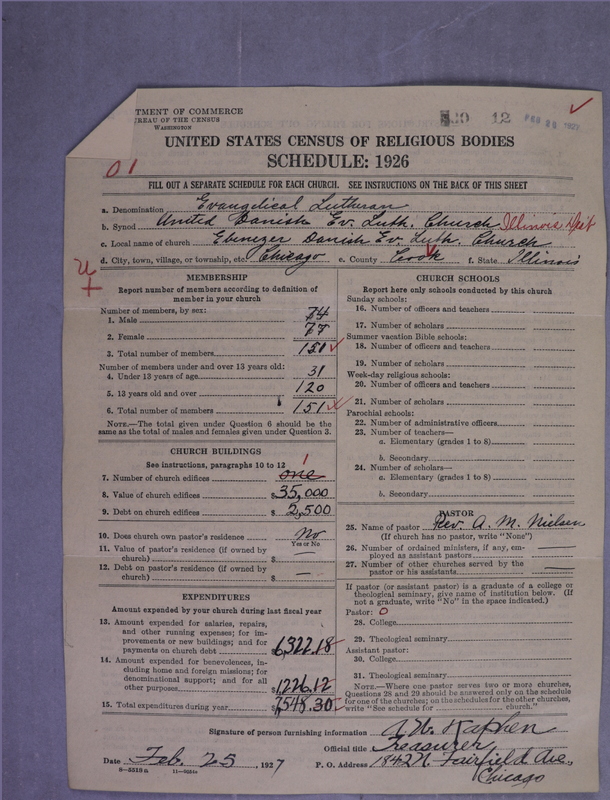 TMENT OF COMMERCE
REAU OF THE CENSUS
WASHINGTON
12 FEB 26 1927
UNITED STATES CENSUS OF RELIGIOUS BODIES
SCHEDULE: 1926
01
FILL OUT A SEPARATE SCHEDULE FOR EACH CHURCH. SEE INSTRUCTIONS ON THE BACK OF THIS SHEET
a. Denomination Evangelical Lutheran
b. Synod United Danish Ev. Luth. Church Illinois Dist
c. Local name of church Ebenezer Danish Ev. Luth. Church
d. City, town, village, or township, etc. Chicago e. County Cook f. State Illinois
MEMBERSHIP
Report number of members according to definition of
member in your church
Number of members, by sex:
1. Male 74
2. Female 77
3. Total number of members 151
Number of members under and over 13 years old:
4. Under 13 years of age 31
5. 13 years old and over 120
6. Total number of members 151
NOTE.—The total given under Question 6 should be the
same as the total of males and females given under Question 3.
CHURCH BUILDINGS
See instructions, paragraphs 10 to 12
7. Number of church edifices one 1
8. Value of church edifices $35,000
9. Debt on church edifices $2,500
10. Does church own pastor's residence? No
Yes or No
11. Value of pastor's residence (if owned by
church) $ —
12. Debt on pastor's residence (if owned by
church) $ —
EXPENDITURES
Amount expended by your church during last fiscal year
13. Amount expended for salaries, repairs,
and other running expenses; for im-
provements or new buildings; and for
payments on church debt $6,322.18
14. Amount expended for benevolences, in-
cluding home and foreign missions; for
denominational support; and for all
other purposes $1226.12
15. Total expenditures during year $7548.30
CHURCH SCHOOLS
Report here only schools conducted by this church
Sunday schools:
16. Number of officers and teachers
17. Number of scholars
Summer vacation Bible schools:
18. Number of officers and teachers
19. Number of scholars
Week-day religious schools:
20. Number of officers and teachers
21. Number of scholars
Parochial schools:
22. Number of administrative officers
23. Number of teachers—
a. Elementary (grades 1 to 8)
b. Secondary
24. Number of scholars—
a. Elementary (grades 1 to 8)
b. Secondary
PASTOR
25. Name of pastor Rev. A. M. Nielsen
(If church has no pastor, write "None")
26. Number of ordained ministers, if any, em-
ployed as assistant pastors —
27. Number of other churches served by the
pastor or his assistants —
If pastor (or assistant pastor) is a graduate of a college or
theological seminary, give name of institution below. (If
not a graduate, write "No" in the space indicated.)
Pastor: 0
28. College
29. Theological seminary
Assistant pastor:
30. College
31. Theological seminary
NOTE.—Where one pastor serves two or more churches,
Questions 28 and 29 should be answered only on the schedule
for one of the churches; on the schedules for the other churches,
write "See schedule for church."
Signature of person furnishing information
Official title Treasurer
Date Feb. 25, 1927 P. O. Address 1842 N. Fairfield Ave.,
Chicago
8—5518a